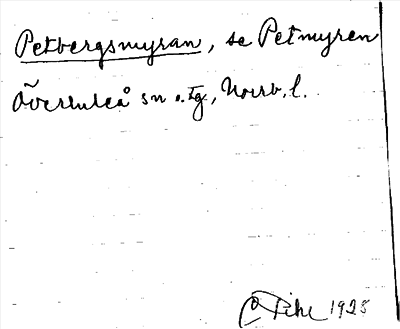 Petbergsmyran, se Petmyren
Överluleå sn o. tg., Norrb. l.
C Pihl 1928